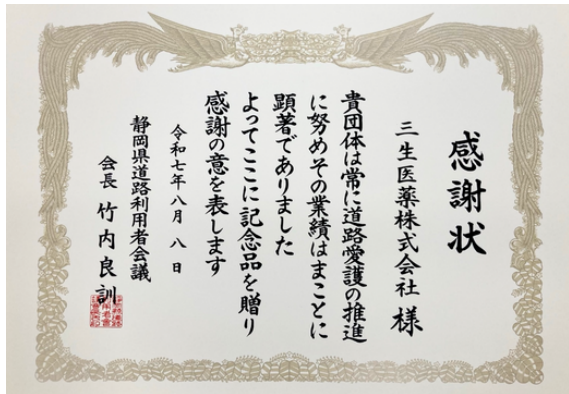 感謝状
三生医薬株式会社 様
貴団体は常に道路愛護の推進
に努めその業績はまことに
顕著でありました
よってここに記念品を贈り
感謝の意を表します
令和七年八月 八 日
静岡県道路利用者会議
会長 竹内良訓